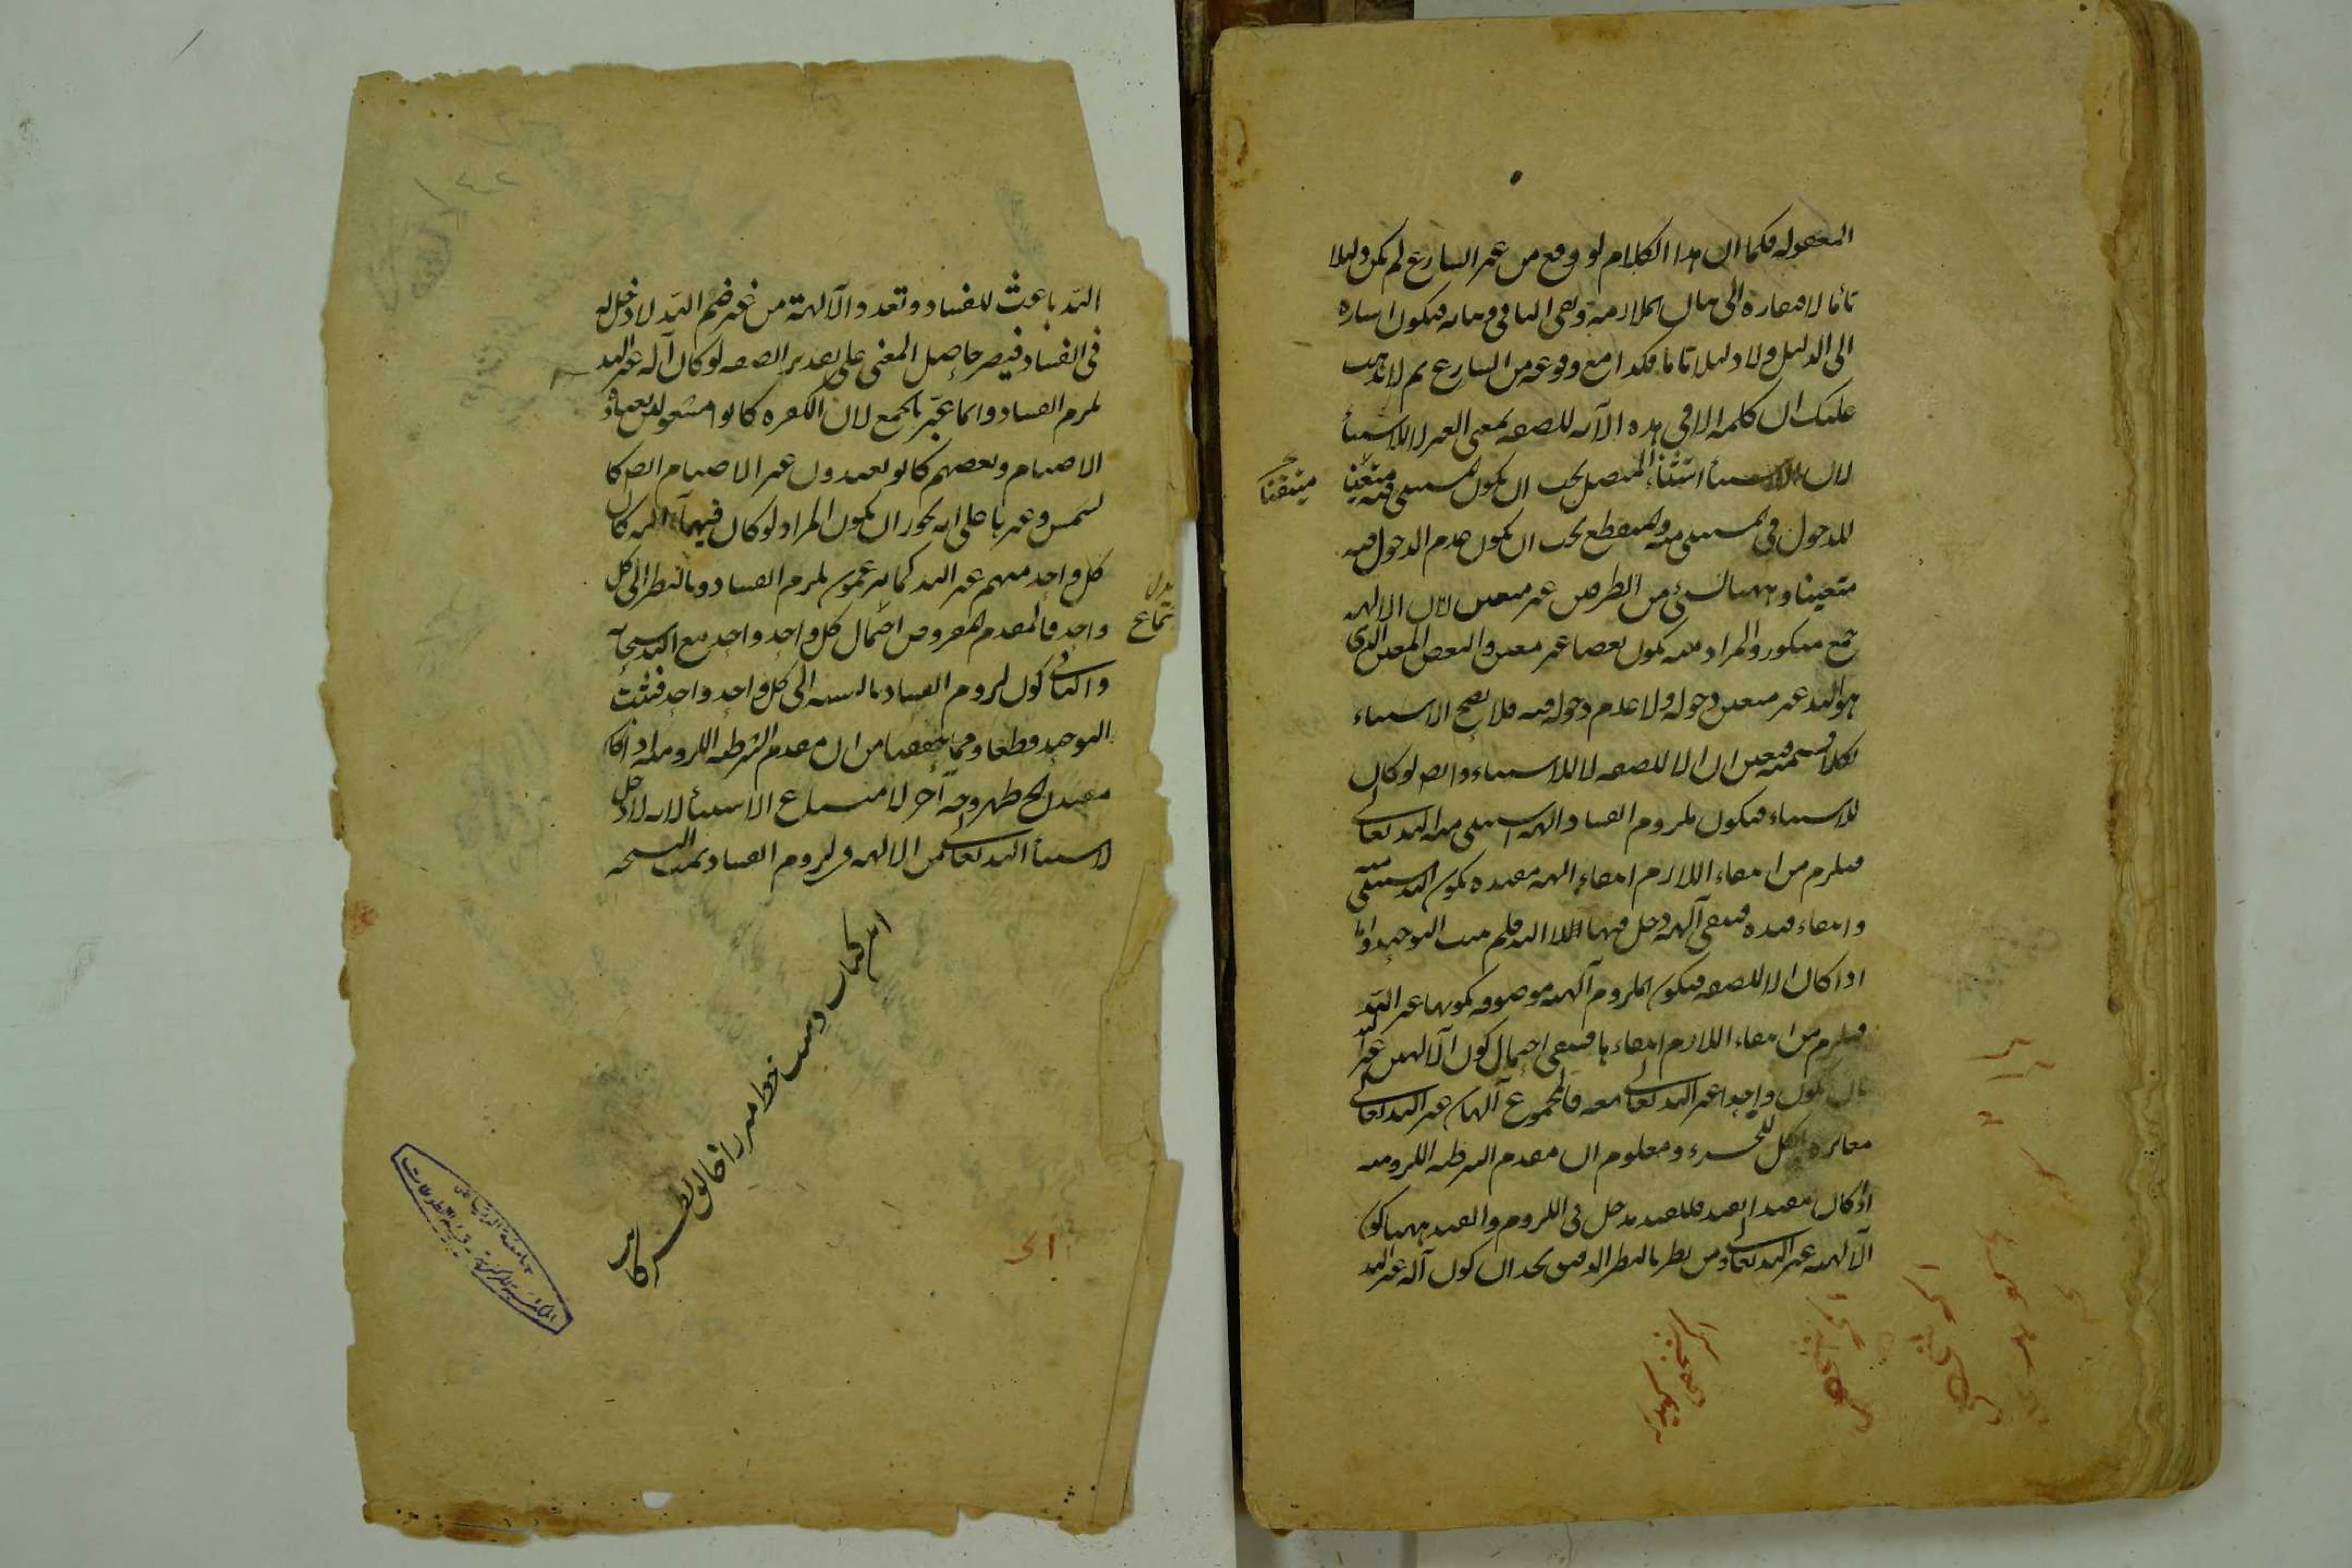 المعقوله فكما ان هذا الكلام لو وقع من غير الشارع لم يكن دليلا
تاما لافتقاره الى بيان الملازمة ونفى التالى وبيانه فيكون اشارة
الى الدليل ولا دليلا تاما فكذا مع وقوعه من الشارع ثم لا يذهب
عليك ان كلمة الا فى هذه الآية للصفة بمعنى الغير لا للاستثناء
لان استثناء المتصل يجب ان يكون المستثنى فيه متعينا
متيقنا
للدخول فى المستثنى منه والمنقطع يجب ان يكون عدم الدخول فيه
متعينا وههنا شئ من الطرفين غير متعين لان الالهة
جمع منكور والمراد منه يكون بعضا غير معين والبعض المعين الذى
هو الله غير متعين دخوله ولا عدم دخوله فيه فلا يصح الاستثناء
بكلا قسميه فتعين ان الا للصفة لا للاستثناء وايض لو كان
للاستثناء فيكون ملزوم الفساد الهة استثنى منه الله تعالى
فيلزم من انتفاء اللازم انتفاء الهة مقيدة بكون الله مستثنى منه
وانتفاء قيده فيبقى آلهة دخل فيها الله فلم يثبت التوحيد واما
اذا كان الا للصفة فيكون الملزوم آلهة موصوفة بكونها غير الله
فيلزم من انتفاء اللازم انتفاءها فيبقى احتمال كون الآلهين غير الله
بان يكون واحدا غير الله تعالى معه فالمجموع آلهان غير الله تعالى
مغايرة الكل للجزء ومعلوم ان مقدم الشرطية اللزومية
اذ كان مقيدا بقيد فللقيد مدخل فى اللزوم والقيد ههنا كون
الآلهة غير الله تعالى ومن نظر بالنظر الدقيق يجد ان كون آله غير الله
الله باعث للفساد وتعدد الآلهة من غير ضم الله لا دخل له
فى الفساد فيصير حاصل المعنى على تقدير الصفة لو كان آله غير الله
لزم الفساد وانما عبّر بالجمع لان الكفرة كانوا مشغولين بعبادة
الاصنام وبعضهم كانو يعبدون غير الاصنام ايض كا
لشمس وغيرها على انه يجوز ان يكون المراد لو كان فيهما آلهة كان
كل واحد منهم غير الله كما يزعمون لزم الفساد وبالنظر الى كل
واحد فالمقدم المفروض احتمال كل واحد واحد مع الله سبحانه
والتالى كون لزوم الفساد بالنسبة الى كل واحد واحد فثبت
التوحيد قطعا ومما حققنا من ان مقدم الشرطية اللزومية اذا كان
مقيدا الخ ظهر وجه آخر لامتناع الاستثناء لانه لا دخل
لاستثناء الله تعالى من الالهة فى لزوم الفساد تمت النسخه
اين كتاب دست خط
جامعة الرياض
المكتبة المركزية - قسم المخطوطات